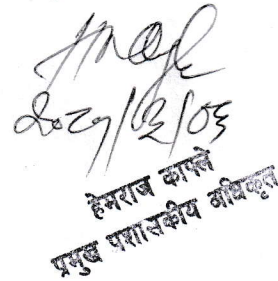 २०८१/०३/०६
हेमराज काफ्ले
प्रमुख प्रशासकीय अधिकृत